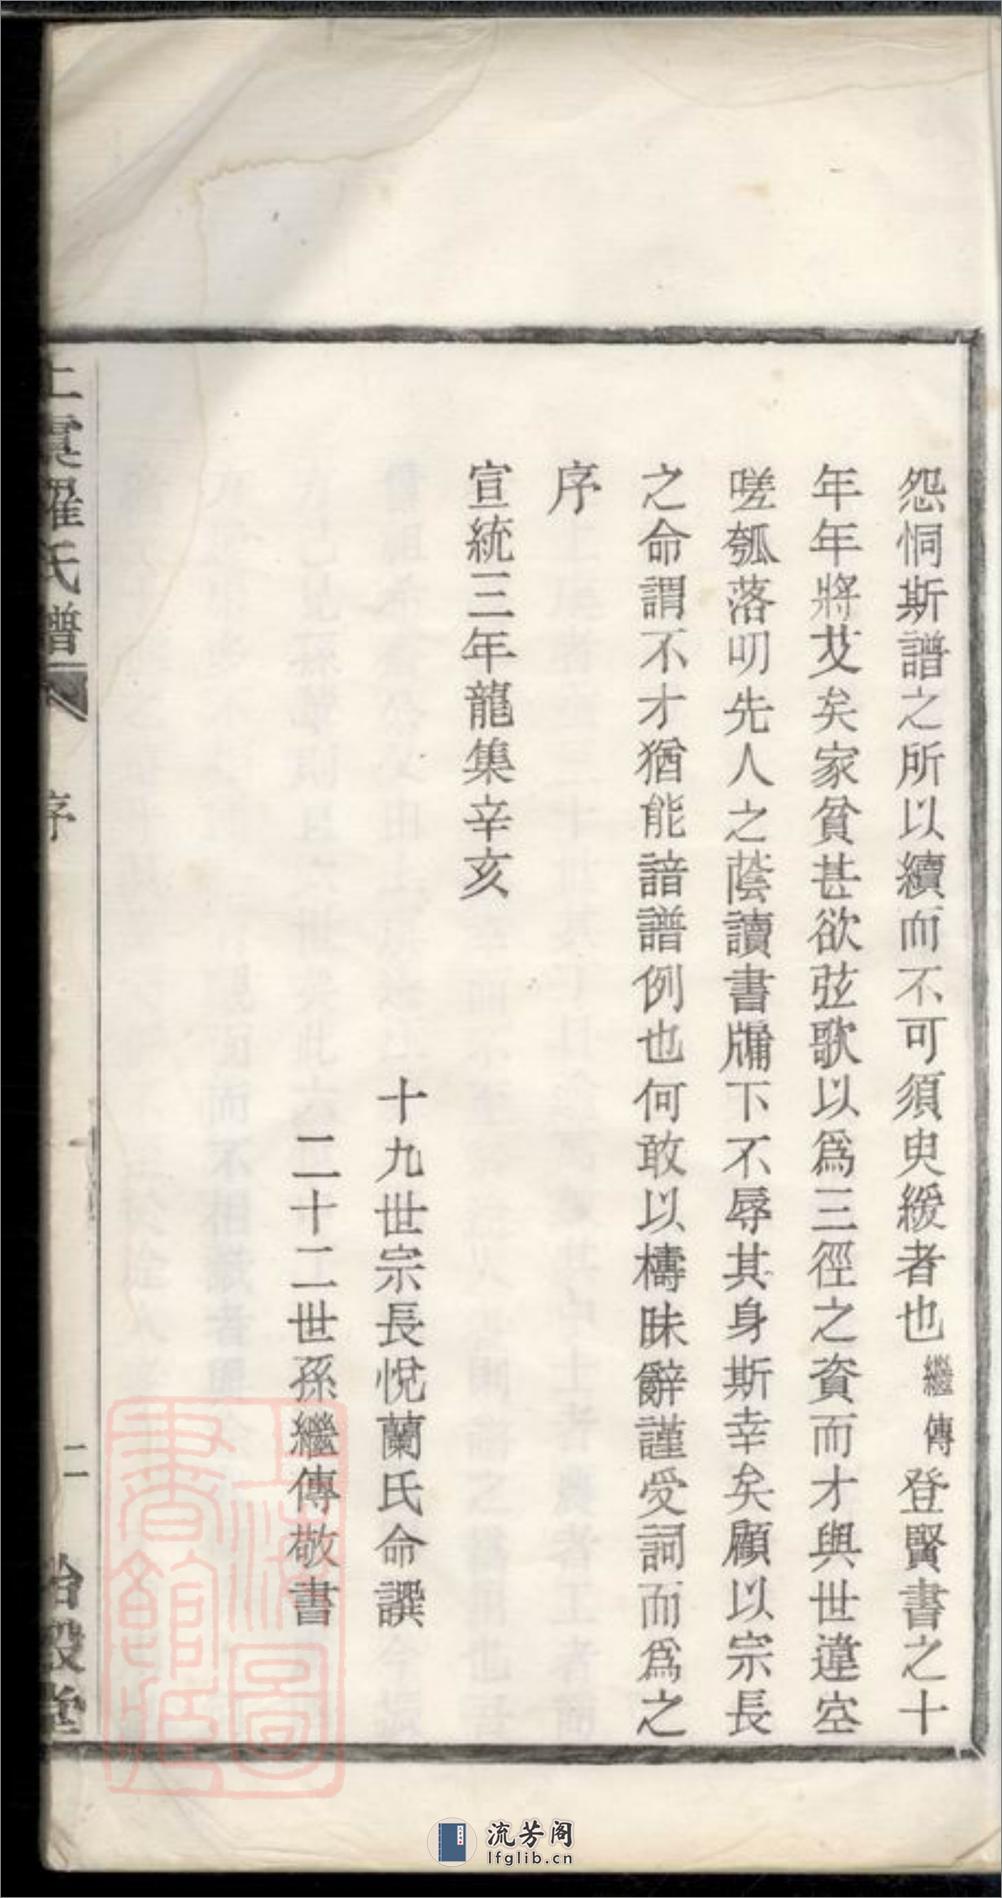 怨恫斯譜之所以續而不可須臾緩者也繼傳登賢書之十
年年將艾矣家貧甚欲弦歌以爲三徑之資而才與世違空
嗟瓠落叨先人之蔭讀書牖下不辱其身斯幸矣顧以宗長
之命謂不才猶能諳譜例也何敢以檮昧辭謹受詞而爲之
序
宣統三年龍集辛亥
十九世宗長悅蘭氏命譔
二十二世孫繼傳敬書
上虞羅氏譜
序
二
上海圖書館藏
流芳阁
lfglib.cn